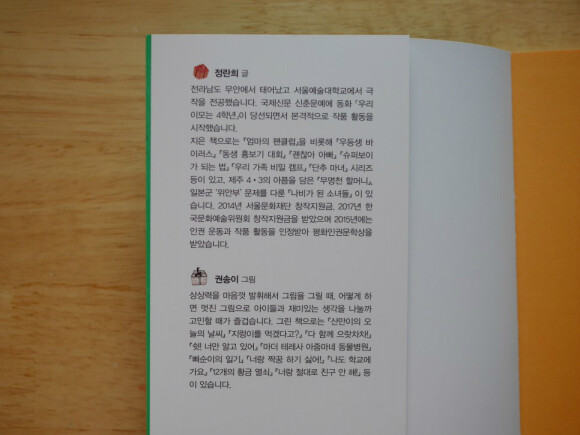 정란희 글
전라남도 무안에서 태어났고 서울예술대학교에서 극
작을 전공했습니다. 국제신문 신춘문예에 동화 「우리
이모는 4학년」이 당선되면서 본격적으로 작품 활동을
시작했습니다.
지은 책으로는 『엄마의 팬클럽』을 비롯해 『우등생 바
이러스』 『동생 흉보기 대회』 『괜찮아 아빠』 『슈퍼보이
가 되는 법』 『우리 가족 비밀 캠프』 『단추 마녀』 시리즈
등이 있고, 제주 4·3의 아픔을 담은 『무명천 할머니』,
일본군 '위안부' 문제를 다룬 『나비가 된 소녀들』이 있
습니다. 2014년 서울문화재단 창작지원금, 2017년 한
국문화예술위원회 창작지원금을 받았으며 2015년에는
인권 운동과 작품 활동을 인정받아 평화인권문학상을
받았습니다.
권송이 그림
상상력을 마음껏 발휘해서 그림을 그릴 때, 어떻게 하
면 멋진 그림으로 아이들과 재미있는 생각을 나눌까
고민할 때가 즐겁습니다. 그린 책으로는 『산만이의 오
늘의 날씨』 『지렁이를 먹겠다고?』 『다 함께 으랏차차!』
『쉿! 너만 알고 있어』 『마더 테레사 아줌마네 동물병원』
『빼순이의 일기』 『너랑 짝꿍 하기 싫어!』 『나도 학교에
가요』 『12개의 황금 열쇠』 『너랑 절대로 친구 안 해!』 등
이 있습니다.